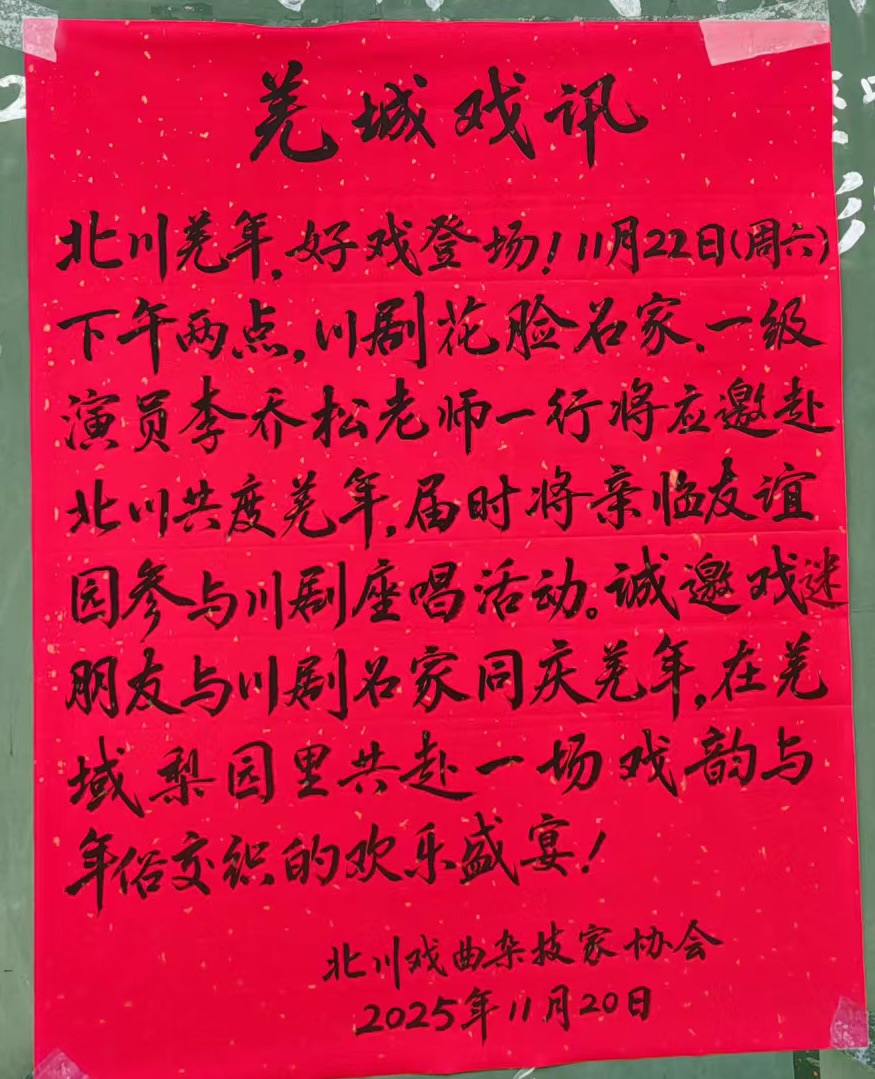 羌城戏讯
北川羌年,好戏登场!11月22日(周六)
下午两点,川剧花脸名家、一级
演员李乔松老师一行将应邀赴
北川共度羌年,届时将亲临友谊
园参与川剧座唱活动。诚邀戏迷
朋友与川剧名家同庆羌年,在羌
域梨园里共赴一场戏韵与
年俗交织的欢乐盛宴!
北川戏曲杂技家协会
2025年11月20日